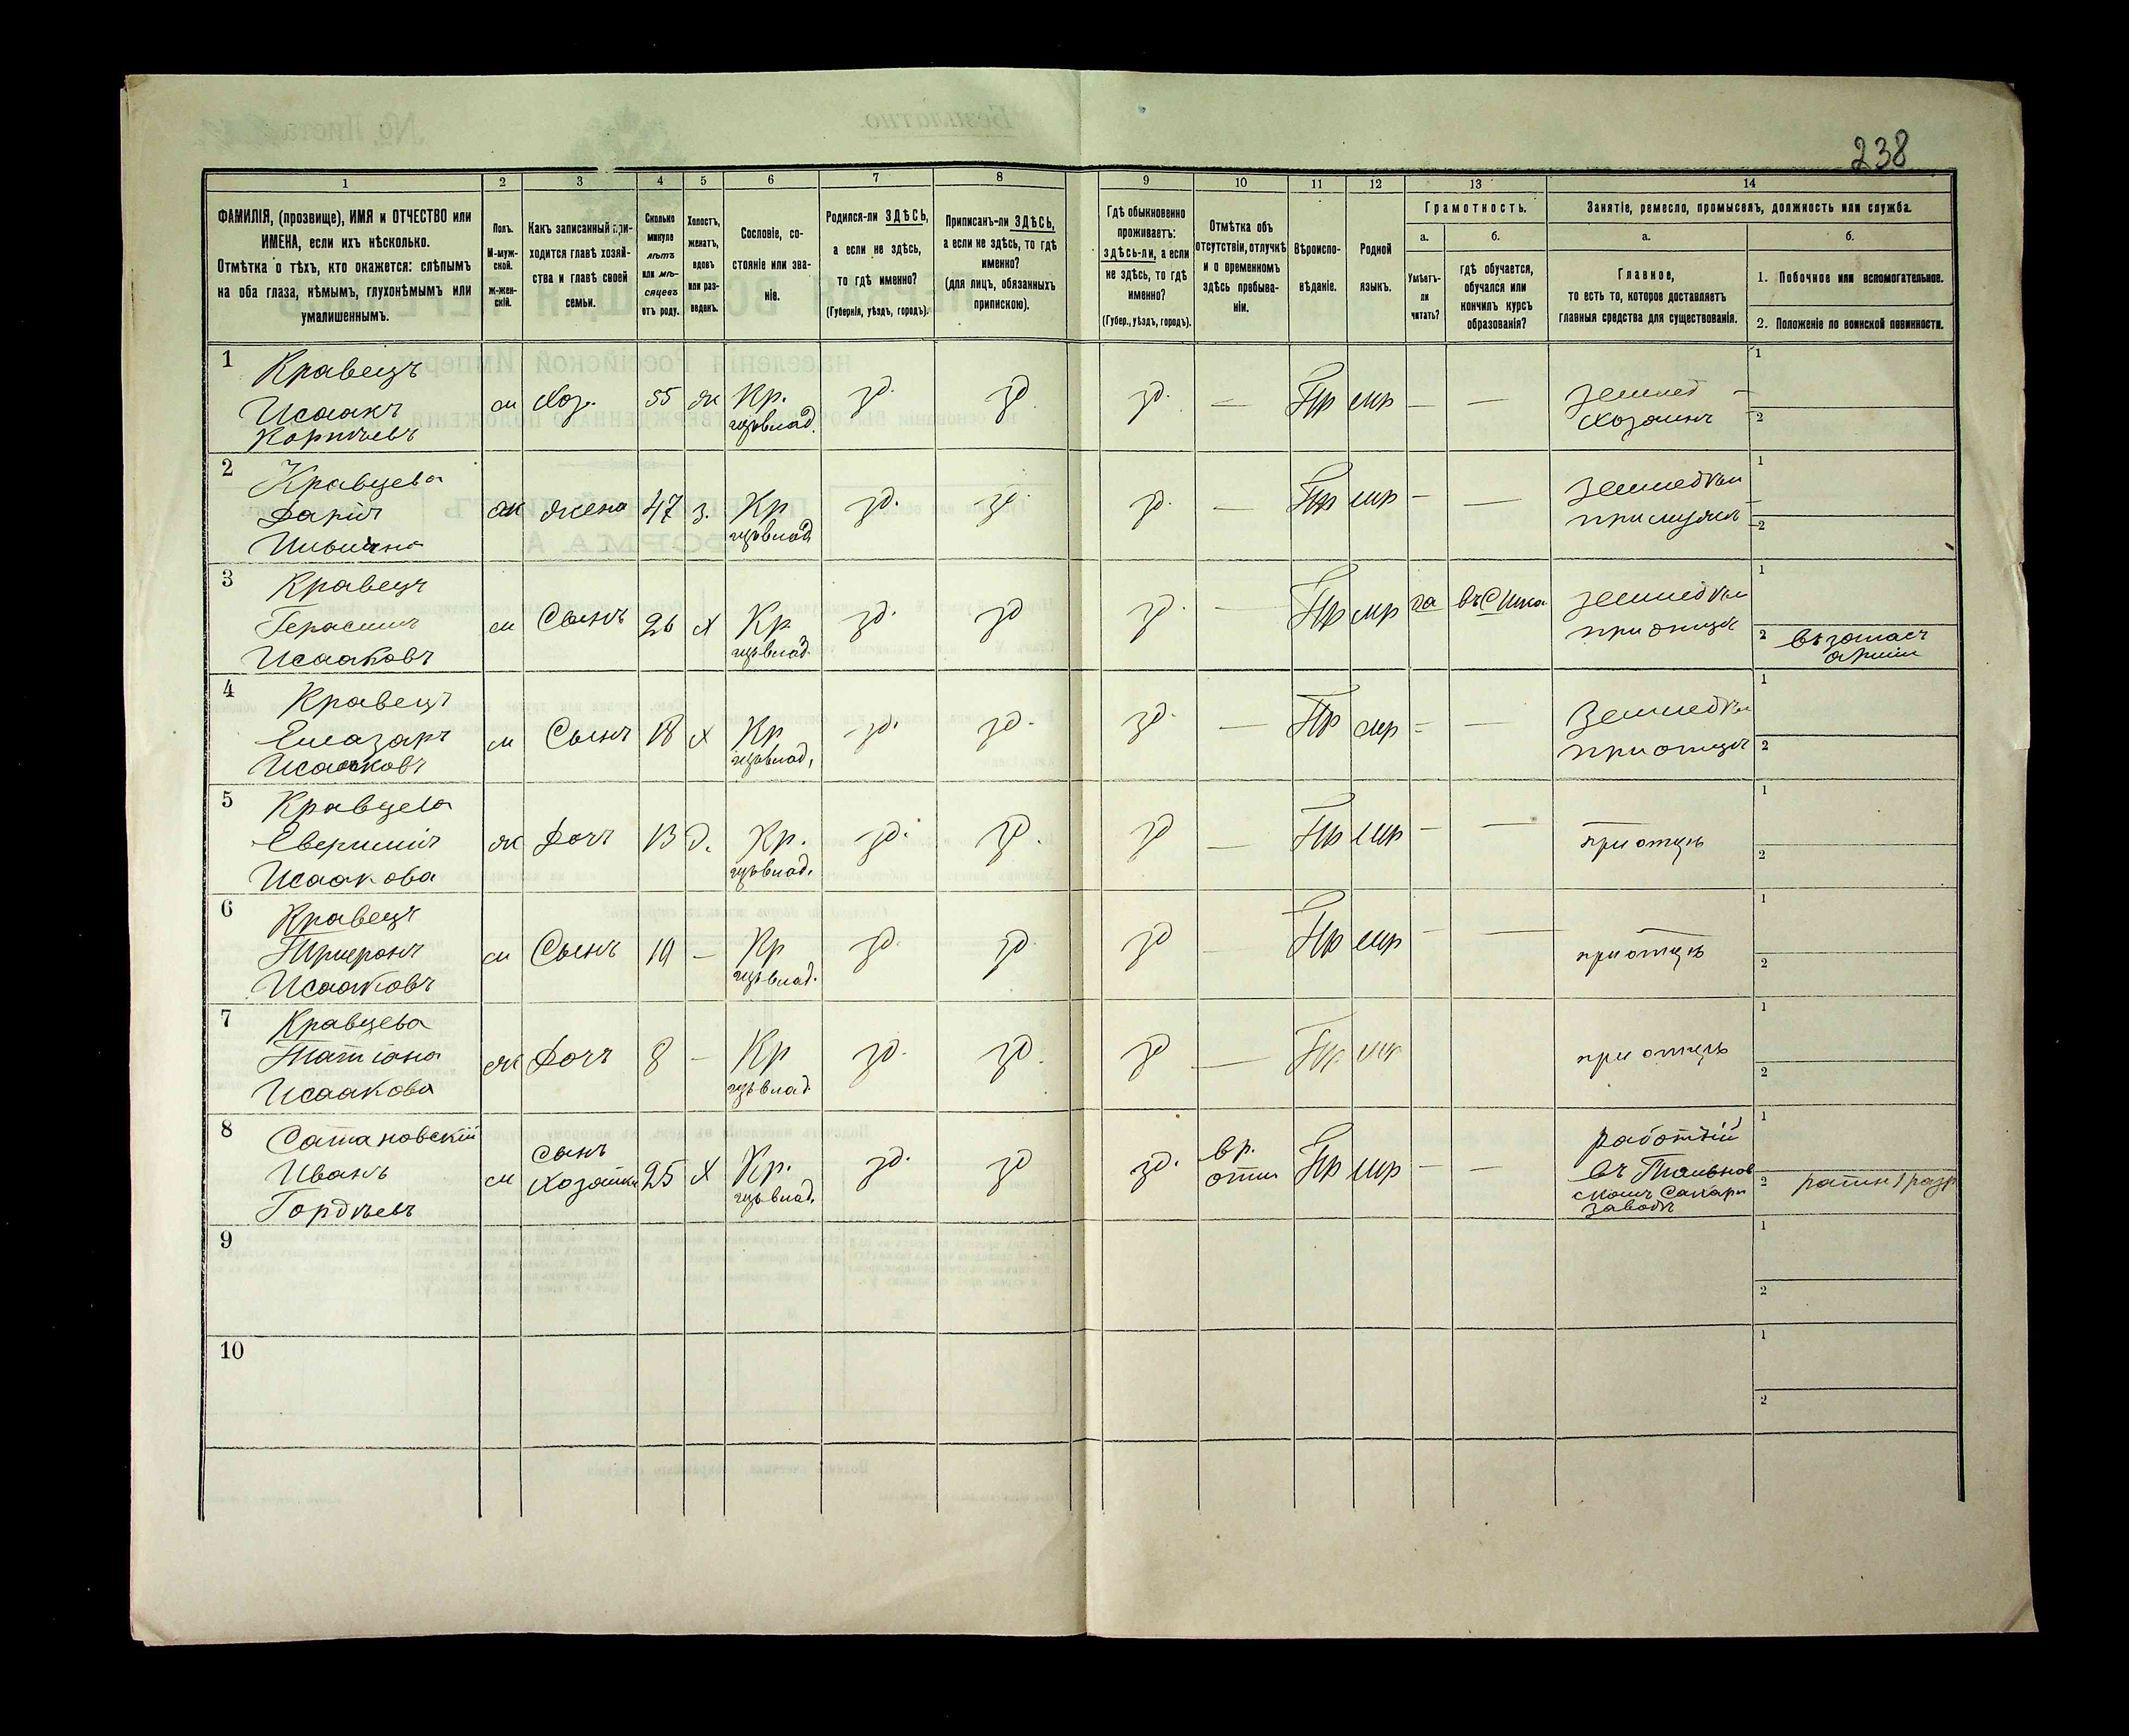 238
1 2 3 4 5 6 7 8 9 10 11 12 13 14
ФАМИЛІЯ, (прозвище), ИМЯ и ОТЧЕСТВО или
ИМЕНА, если ихъ нѣсколько.
Отмѣтка о тѣхъ, кто окажется: слѣпымъ
на оба глаза, нѣмымъ, глухонѣмымъ или
умалишеннымъ.
Полъ.
М-муж-
ской.
Ж-жен-
скій.
Какъ записанный при-
ходится главѣ хозяй-
ства и главѣ своей
семьи.
Сколько
минуло
лѣтъ
или мѣ-
сяцевъ
отъ роду.
Холостъ,
женатъ,
вдовъ
или раз-
веденъ.
Сословіе, со-
стояніе или зва-
ніе.
Родился-ли ЗДѢСЬ,
а если не здѣсь,
то гдѣ именно?
(Губернія, уѣздъ, городъ).
Приписанъ-ли ЗДѢСЬ,
а если не здѣсь, то гдѣ
именно?
(для лицъ, обязанныхъ
припискою).
Гдѣ обыкновенно
проживаетъ:
здѣсь-ли, а если
не здѣсь, то гдѣ
именно?
(Губер., уѣздъ, городъ).
Отмѣтка объ
отсутствіи, отлучкѣ
и о временномъ
здѣсь пребыва-
ніи.
Вѣроиспо-
вѣданіе.
Родной
языкъ.
Грамотность.
а.
Умѣетъ-
ли
читать?
б.
гдѣ обучается,
обучался или
кончилъ курсъ
образованія?
Занятіе, ремесло, промыселъ, должность или служба.
а.
Главное,
то есть то, которое доставляетъ
главныя средства для существованія.
б.
1. Побочное или вспомогательное.
2. Положеніе по воинской повинности.
1 Кравецъ
Исаакъ
Корнѣевъ
м Хоз. 55 ж Кр. зд. зд зд. — Пр мр — — землед —
щѣвлад. Хозяинъ
1
2
2 Кравцева
Дарія
Ильична
ж жена 47 з. Кр зд. зд. зд. — Пр мр — —
щѣвлад
1
2
3 Кравецъ
Герасимъ
Исааковъ
м Сынъ 26 х Кр зд. зд зд. — Пр мр да
щѣвлад. при отцѣ
1
2 въ запасѣ
арміи
4 Кравецъ
Елазаръ
Исааковъ
м Сынъ 18 х Кр зд. зд. зд. — Пр мр — —
щѣвлад, при отцѣ
1
2
5 Кравцева
Исаакова
ж Дочь 13 д. Кр. зд. зд. зд — Пр мр — — при отцѣ
щѣвлад.
1
2
6 Кравецъ
Исааковъ
м Сынъ 10 — Кр зд. зд. зд — Пр мр — — при отцѣ
щѣвлад.
1
2
7 Кравцева
Татіана
Исаакова
ж Дочь 8 — Кр зд. зд. зд — Пр мр при отцѣ
щѣвлад.
1
2
8 Сатановскій
Иванъ
Гордѣевъ
м сынъ 25 х Кр. зд. зд зд. вр. Пр мр — — работній
хозяйки щѣвлад. отл
въ Тальнов
скомъ Сахарн
заводѣ
1
2 ратн 1 разр
9
1
2
10
1
2